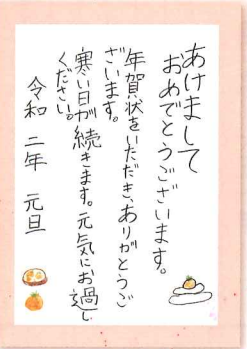 あけまして
おめでとうございます。
年賀状をいただき、ありがとうご
ざいます。
寒い日が続きます。元気にお過し
ください。
令和 二年 元旦